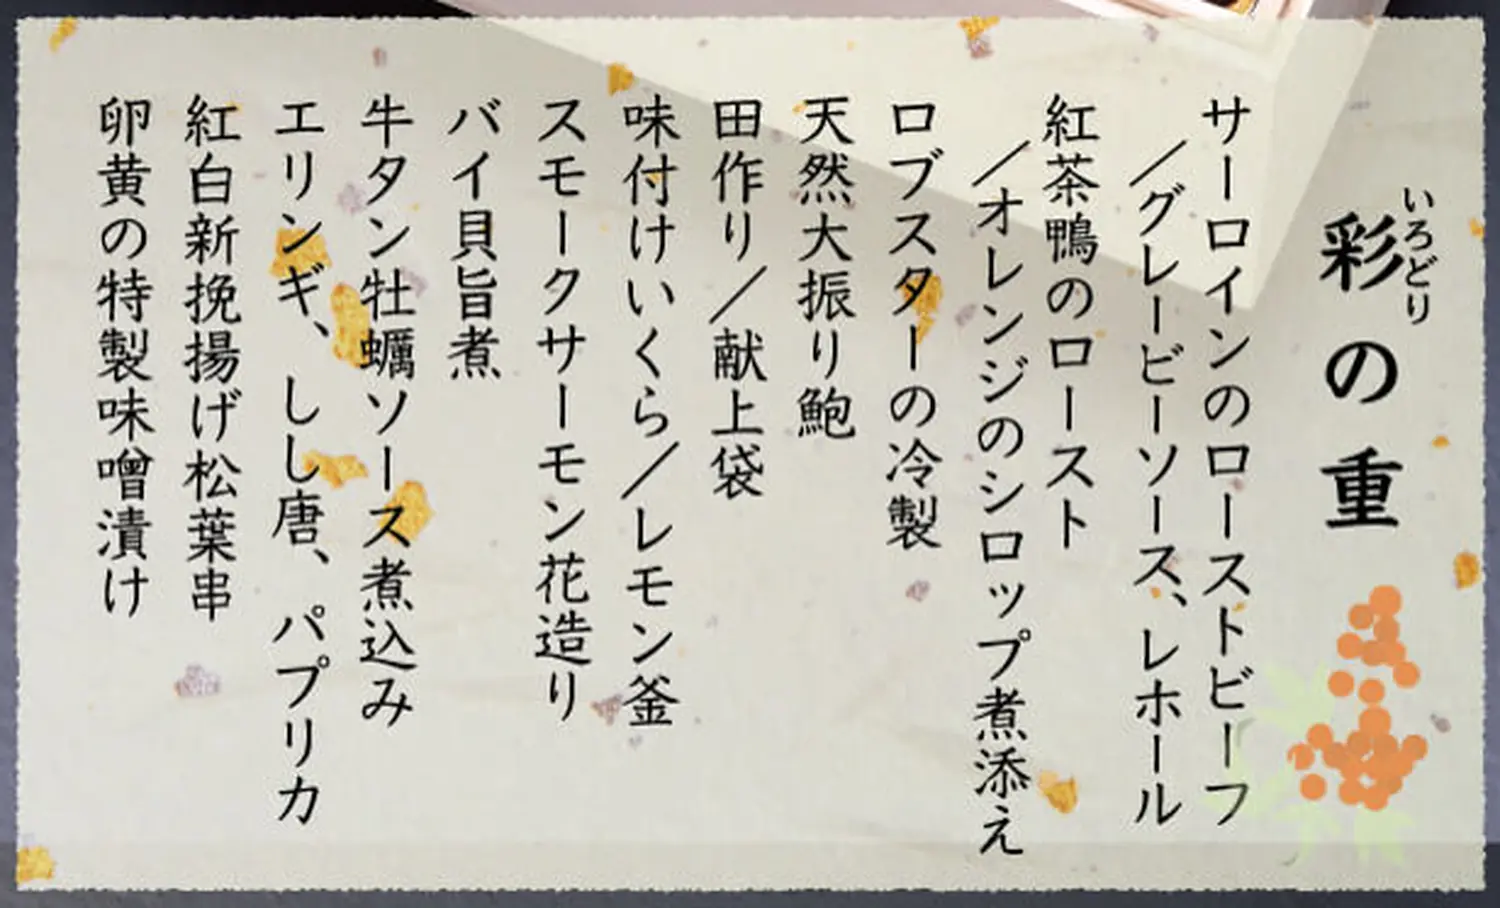 彩の重
いろどり
サーロインのローストビーフ
／グレービーソース、レホール
紅茶鴨のロースト
／オレンジのシロップ煮添え
ロブスターの冷製
天然大振り鮑
田作り／献上袋
味付けいくら／レモン釜
スモークサーモン花造り
バイ貝旨煮
牛タン牡蠣ソース煮込み
エリンギ、しし唐、パプリカ
紅白新挽揚げ松葉串
卵黄の特製味噌漬け